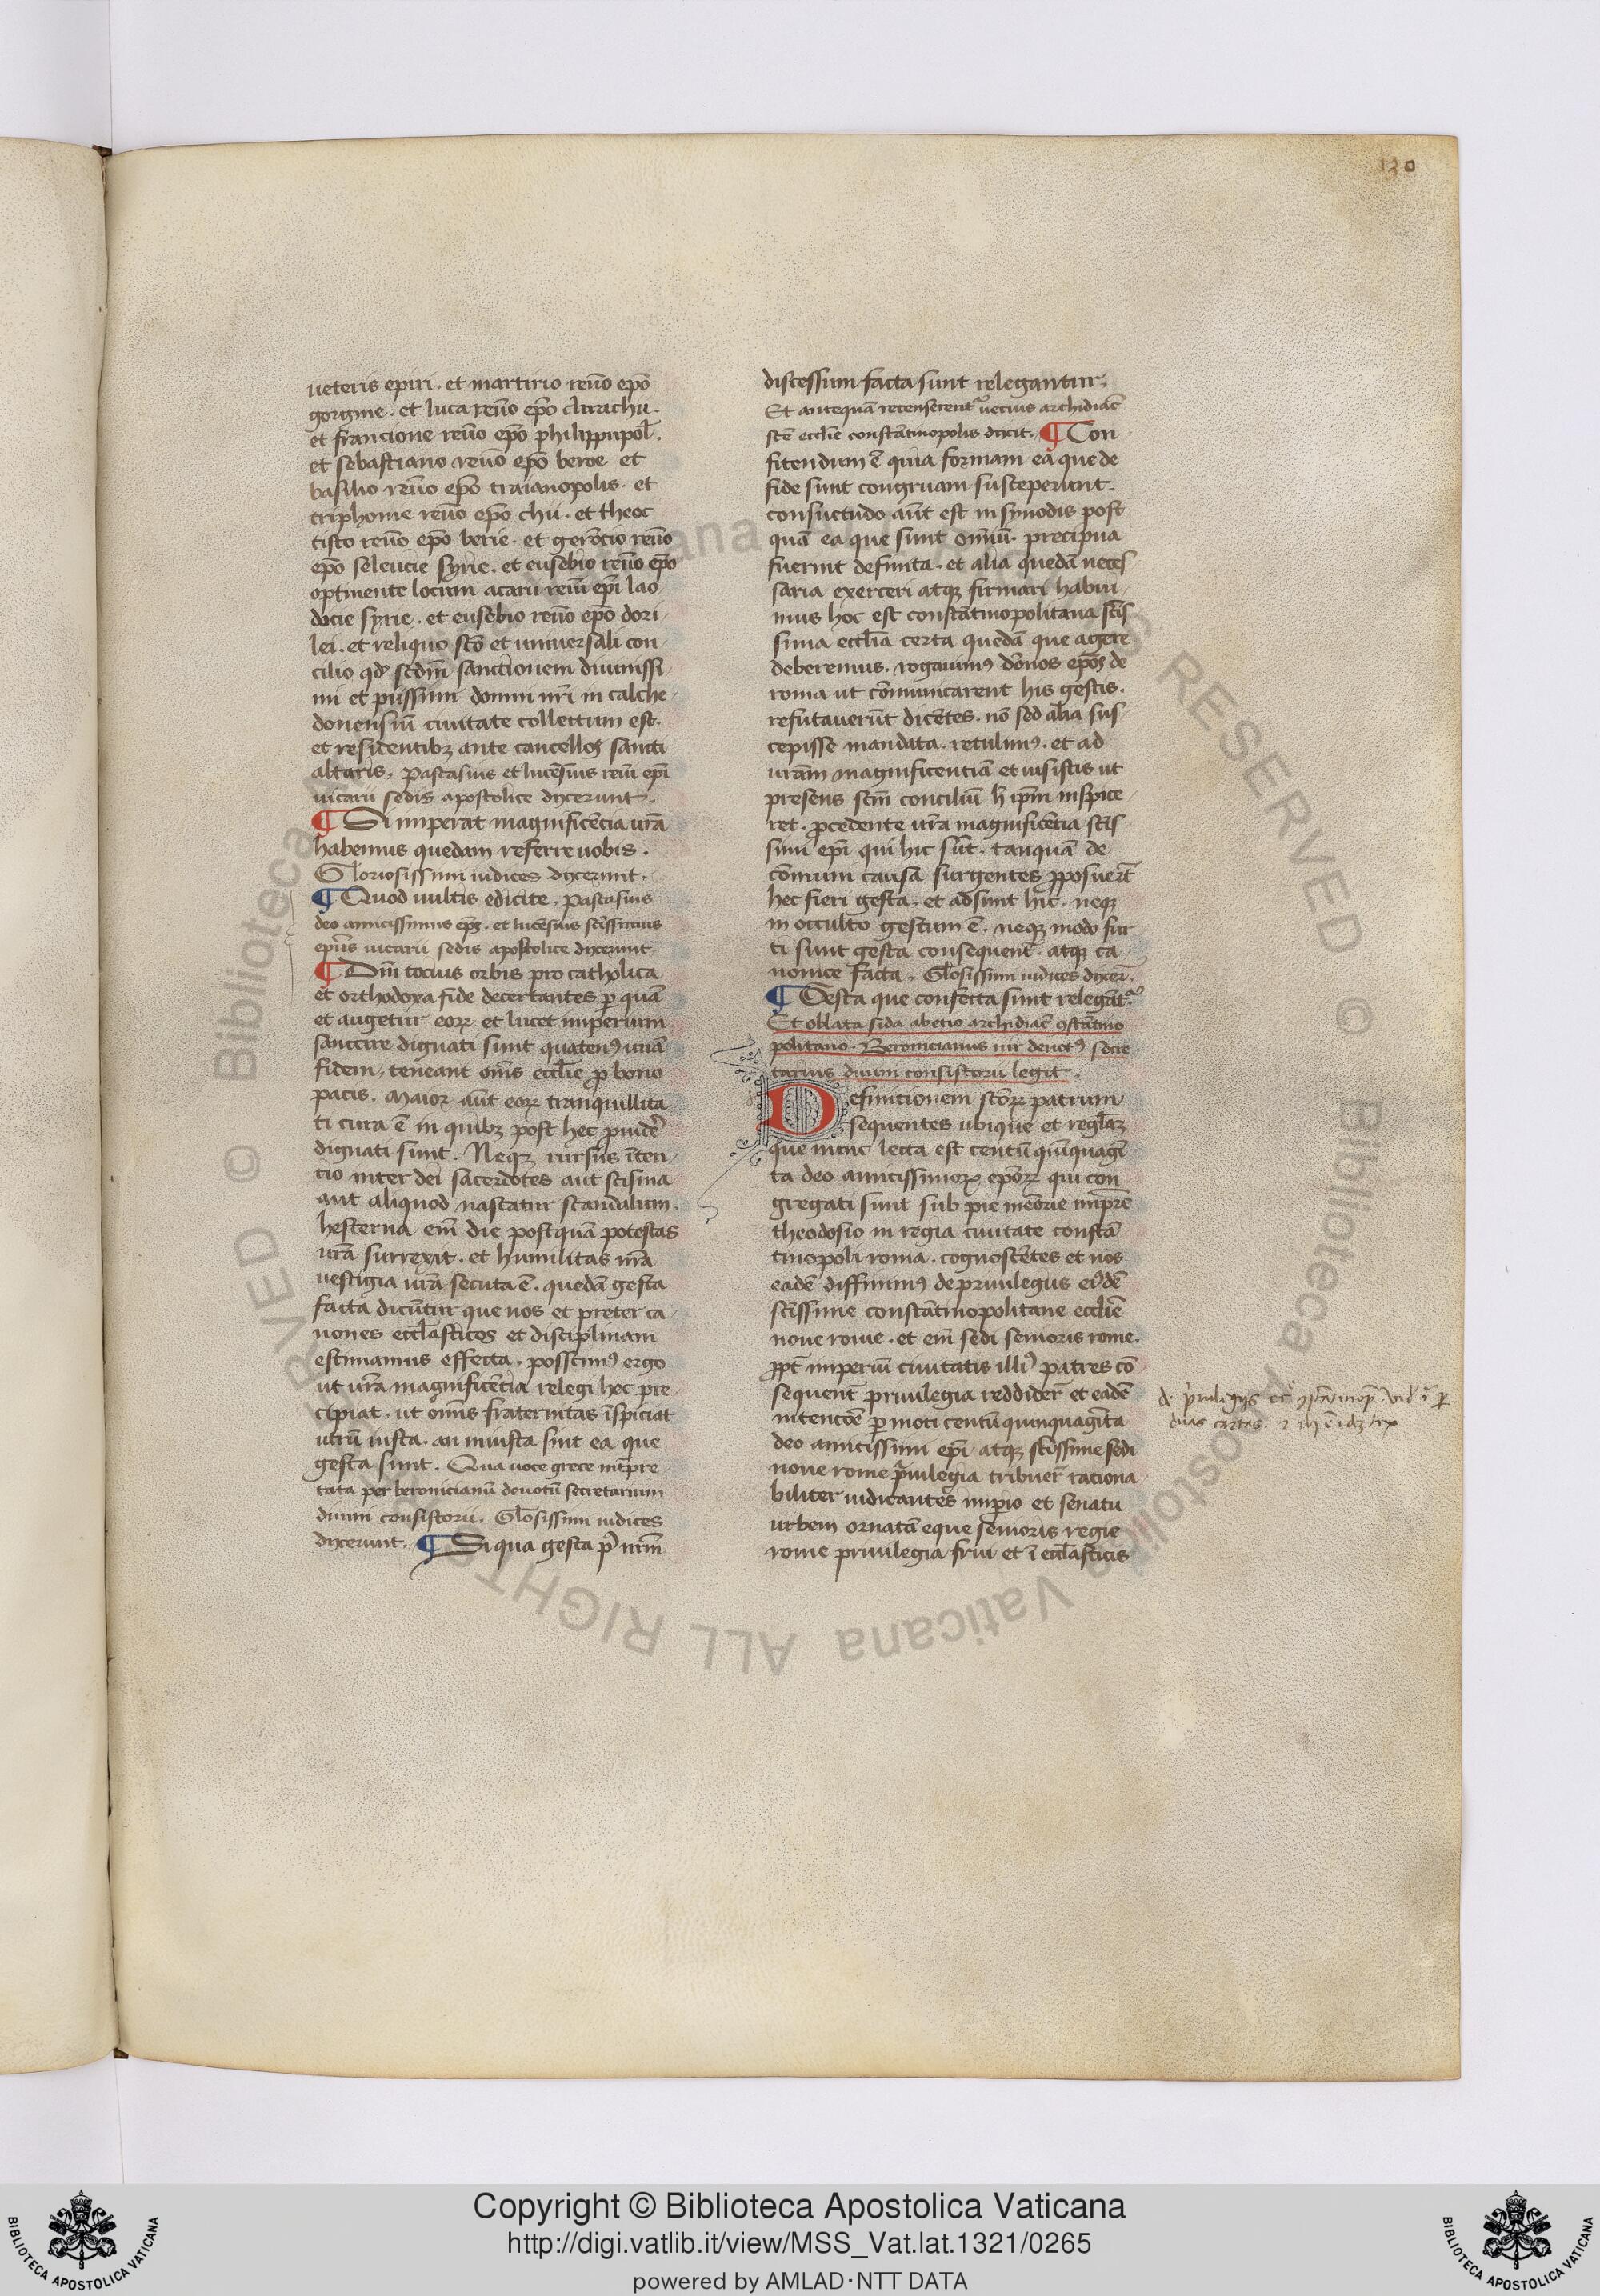 130
ueteris epiri . et martirio reuō epō
gorgine . et luca reuō epō dirachii .
et francione reuō epō philippupol̄ .
et sebastiano reuō epō beroe et
basilio reuō epō traianopolis . et
triphome reuō epō chii . et theoc
tisto reuō epō berie . et gerōcio reuō
epō seleucie syrie . et eusebio reuō epō
optinente locum acarii reūi epī lao
docie syrie . et eusebio reuō epō dori
lei . et reliquo scō et uniuersali con
cilio qd scdm̄ sanctionem diuinissi
mi et piissimi domni nr̄i in calche
donensiū ciuitate collectum est .
et residentibꝫ ante cancellos sancti
altaris . Pascasius et lucēsius reūi epī
uicarii sedis apostolice dixerunt .
¶ Si imperat magnificētia ur̄a
habemus quedam referre uobis .
Gloriosissimi iudices dixerunt .
¶ Quod uultis edicite . Pascasius
deo amicissimus ep̄s . et lucēsius scīssimus
ep̄us uicarii sedis apostolice dixerunt .
¶ Dn̄i tocius orbis pro catholica
et orthodoxa fide decertantes ꝑ quā
et augetur eoꝝ et lucet imperium
sanctire dignati sunt quatenꝰ unā
fidem teneant om̄s eccl̄ie ꝓ bono
pacis . Maior aūt eoꝝ tranquillita
ti cura ē in quibꝫ post hec ꝓuidēr
dignati sunt . Neqꝫ rursus īten
cio inter dei sacerdotes aut scisma
aut aliquod nascatur scandalum .
hesterna em̄ die postquā potestas
ur̄a surrexit . et humilitas nr̄a
uestigia ur̄a secuta ē . quedā gesta
facta dicūtur que nos et preter ca
nones eccl̄asticos et disciplinam
estimamus effecta . poscimꝰ ergo
ut ur̄a magnificētia relegi hec pre
cipiat . ut om̄is fraternitas īspiciat
utrū iusta . an iniusta sint ea que
gesta sunt . Qua uoce grece int̄pre
tata per beronicianū deuotū secretarium
diuini consistorii . Glōsissimi iudices
dixerunt . ¶ Si qua gesta pꝰ nr̄m
discessum facta sunt relegantur .
Et antequā recenserentᷣ uecius archidiac̄
scē eccl̄ie constātinopolis dixit . ¶ Con
fitendum ē quia formam ea que de
fide sunt congruam susceperunt .
consuetudo aūt est in synodis post
quā ea que sunt om̄iū precipua
fuerint definita . et alia quedā neces
saria exerceri atqꝫ firmari habui
mus hoc est constātinopolitana scīs
sima eccl̄ia certa quedā que agere
deberemus . rogauimꝰ dōnos epōs de
roma ut cōmunicarent his gestis .
refutauerūt dicētes . nō sed alīa sus
cepisse mandata . retulimꝰ . et ad
ur̄am magnificentiā et iusistis ut
presens scm̄ conciliū h̄ ip̄m inspice
ret . ꝓcedente ur̄a magnificētia scīs
simi epī qui hic sūt . tanquā de
cōmuni causa surgentes ꝓposuer̄t
hec fieri gesta . et adsunt hic . neqꝫ
in occulto gestum ē . neqꝫ modo fur
ti sunt gesta consequent̄ . atqꝫ ca
nonice facta . Glōsissimi iudices dixer̄ .
¶ Gesta que confecta sunt relegātᷣ .
Et oblata sida abetio archidiac̄ ꝯstātino
politano . Beronicianus uir deuotꝰ secre
tarius diuini consistorii legit .
Definitionem scōꝝ patrum
sequentes ubique et regl̄aꝫ
que nunc lecta est centū quīquagī
ta deo amicissimoꝝ epōꝝ qui con
gregati sunt sub pie memōrie imp̄re
theodosio in regia ciuitate constā
tinopoli roma . cognoscētes et nos
eadē diffinimꝰ de priuilegiis eiꝰdē
scīssime constātinopolitane eccl̄ie
noue rome . et em̄ sedi senioris rome .
ꝓpt̄ imperiū ciuitatis illiꝰ patres cō
sequent̄ priuilegia reddider̄ et eadē
intencōe ꝑmoti centū quinquagīta
deo amicissimi epī atqꝫ scīssime sedi
noue rome priuilegia tribuer̄ rationa
biliter iudicantes imp̄io et senatu
urbem ornatā eque senioris regie
rome priuilegia frui et ī eccl̄asticis
duas cartas .
Copyright © Biblioteca Apostolica Vaticana
http://digi.vatlib.it/view/MSS_Vat.lat.1321/0265
powered by AMLAD·NTT DATA
BIBLIOTECA APOSTOLICA VATICANA
BIBLIOTECA APOSTOLICA VATICANA
© Biblioteca Apostolica Vaticana ALL RIGHTS RESERVED